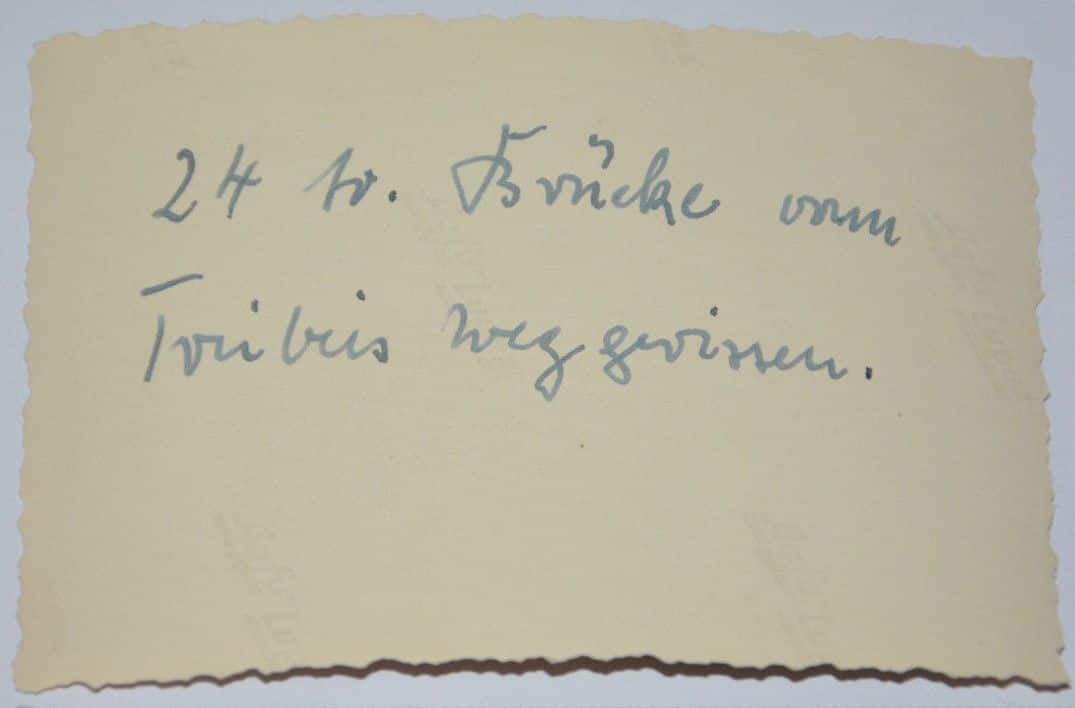 24 to. Brücke vom
Treibeis weggerissen.